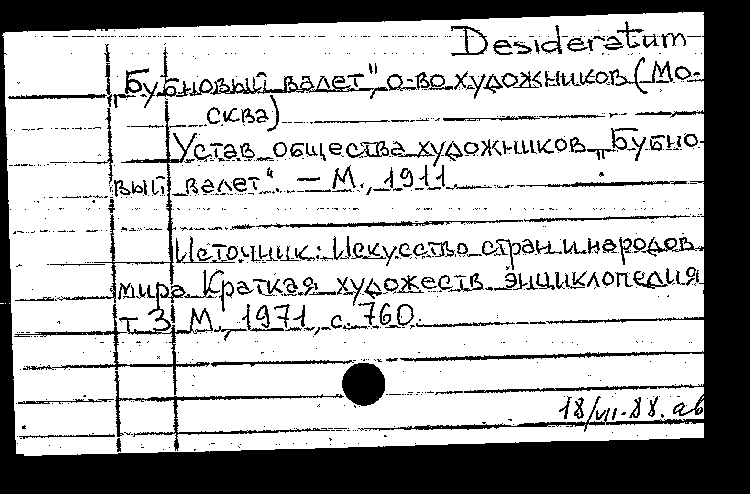 Desideratum
„Бубновый валет", о-во художников (Мо-
сква)
Устав общества художников „Бубно-
вый валет". — М., 1911.
Источник: Искусство стран и народов
мира. Краткая художеств. энциклопедия
т. 3 М., 1971, с. 760.
18/VII-88. ав